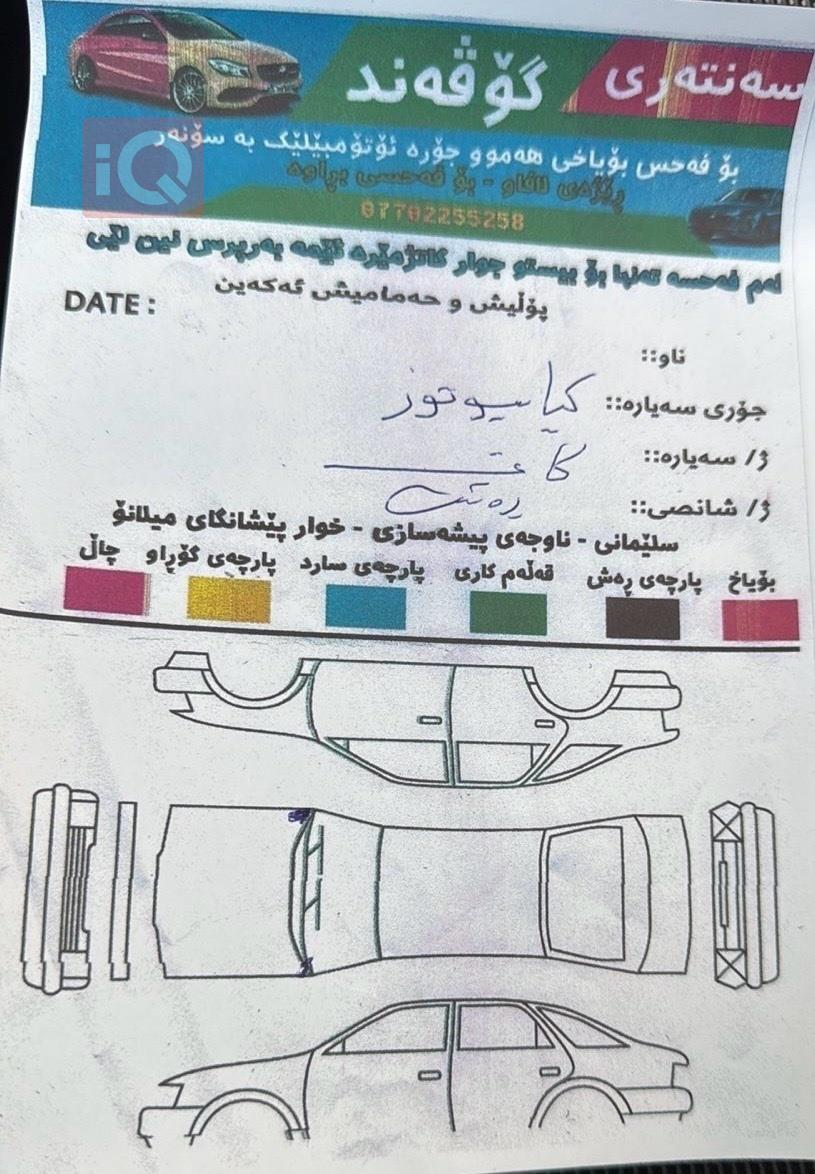 سەنتەری گۆڤەند
iQ
بۆ فەحس بۆیاخی هەموو جۆرە ئۆتۆمبێلێک بە سۆنەر
ڕێژەی لافاو - بۆ فەحسی براوە
07702255258
ئەم فەحسە تەنها بۆ بیستو چوار کاتژمێرە ئێمە بەرپرس نین لێی
پۆڵیش و حەمامیش ئەکەین
DATE :
ناو::
جۆری سەیارە:: کیا سیوتوز
ژ/ سەیارە::
ژ/ شانصی::
سلێمانی - ناوچەی پیشەسازی - خوار پێشانگای میلانۆ
بۆیاخ پارچەی ڕەش قەڵەم کاری پارچەی سارد پارچەی گۆڕاو چاڵ